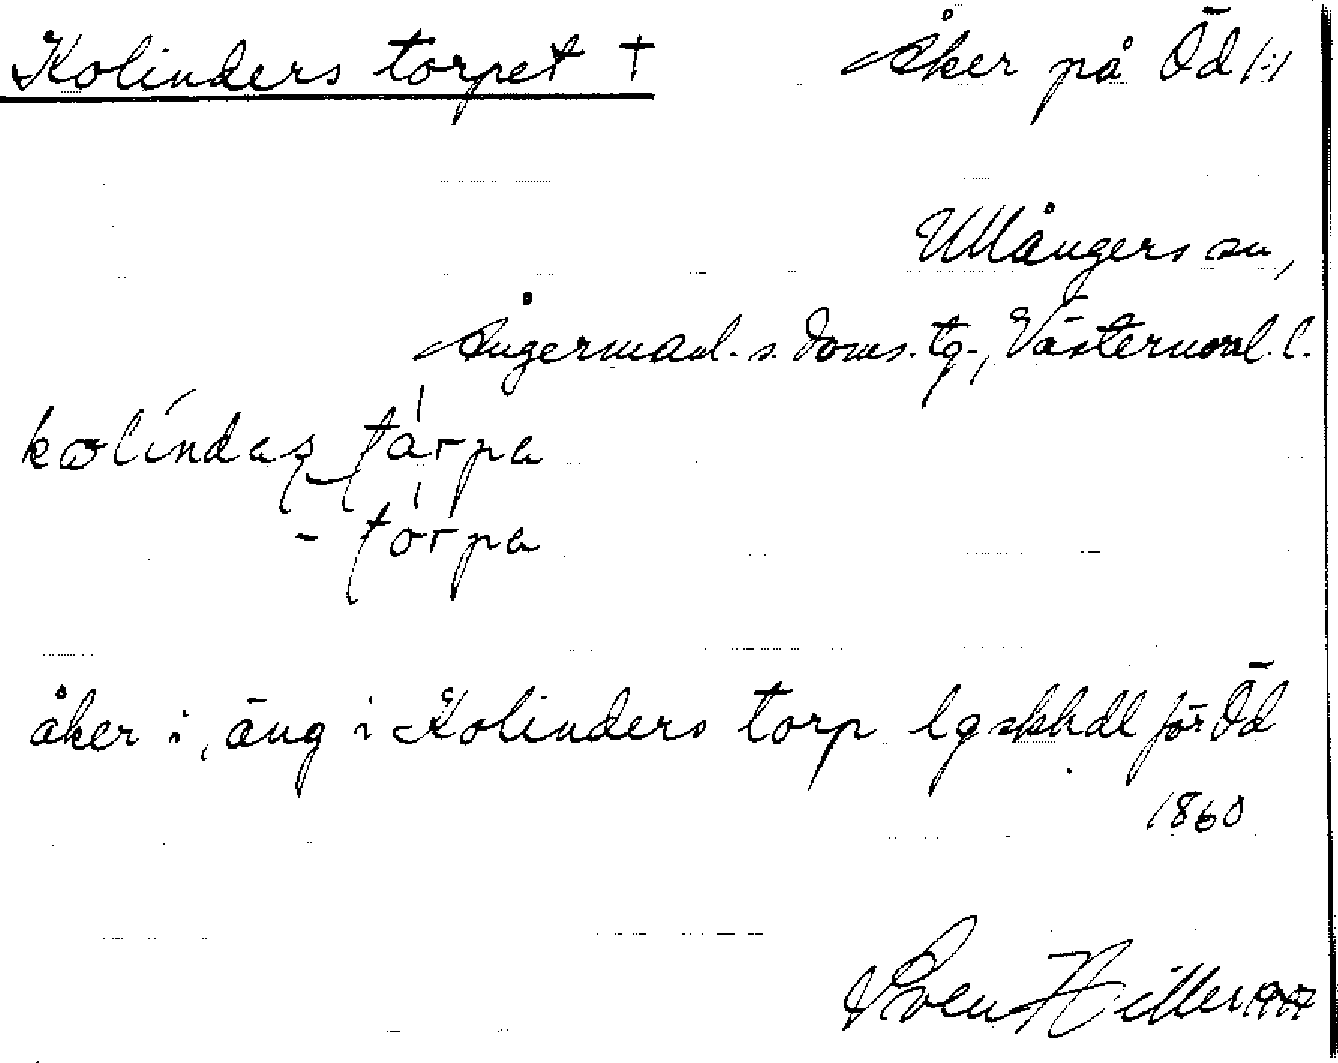 Kolinders torpet † Åker på Öd 1:1
Ullångers sn,
Ångermanl. s. doms. tg., Västernorrl. l.
kolindaʂ tårpa
- tórpa
åker i, äng i Kolinders torp lgskhdl för Öd
1860
Sven Hiller 1967